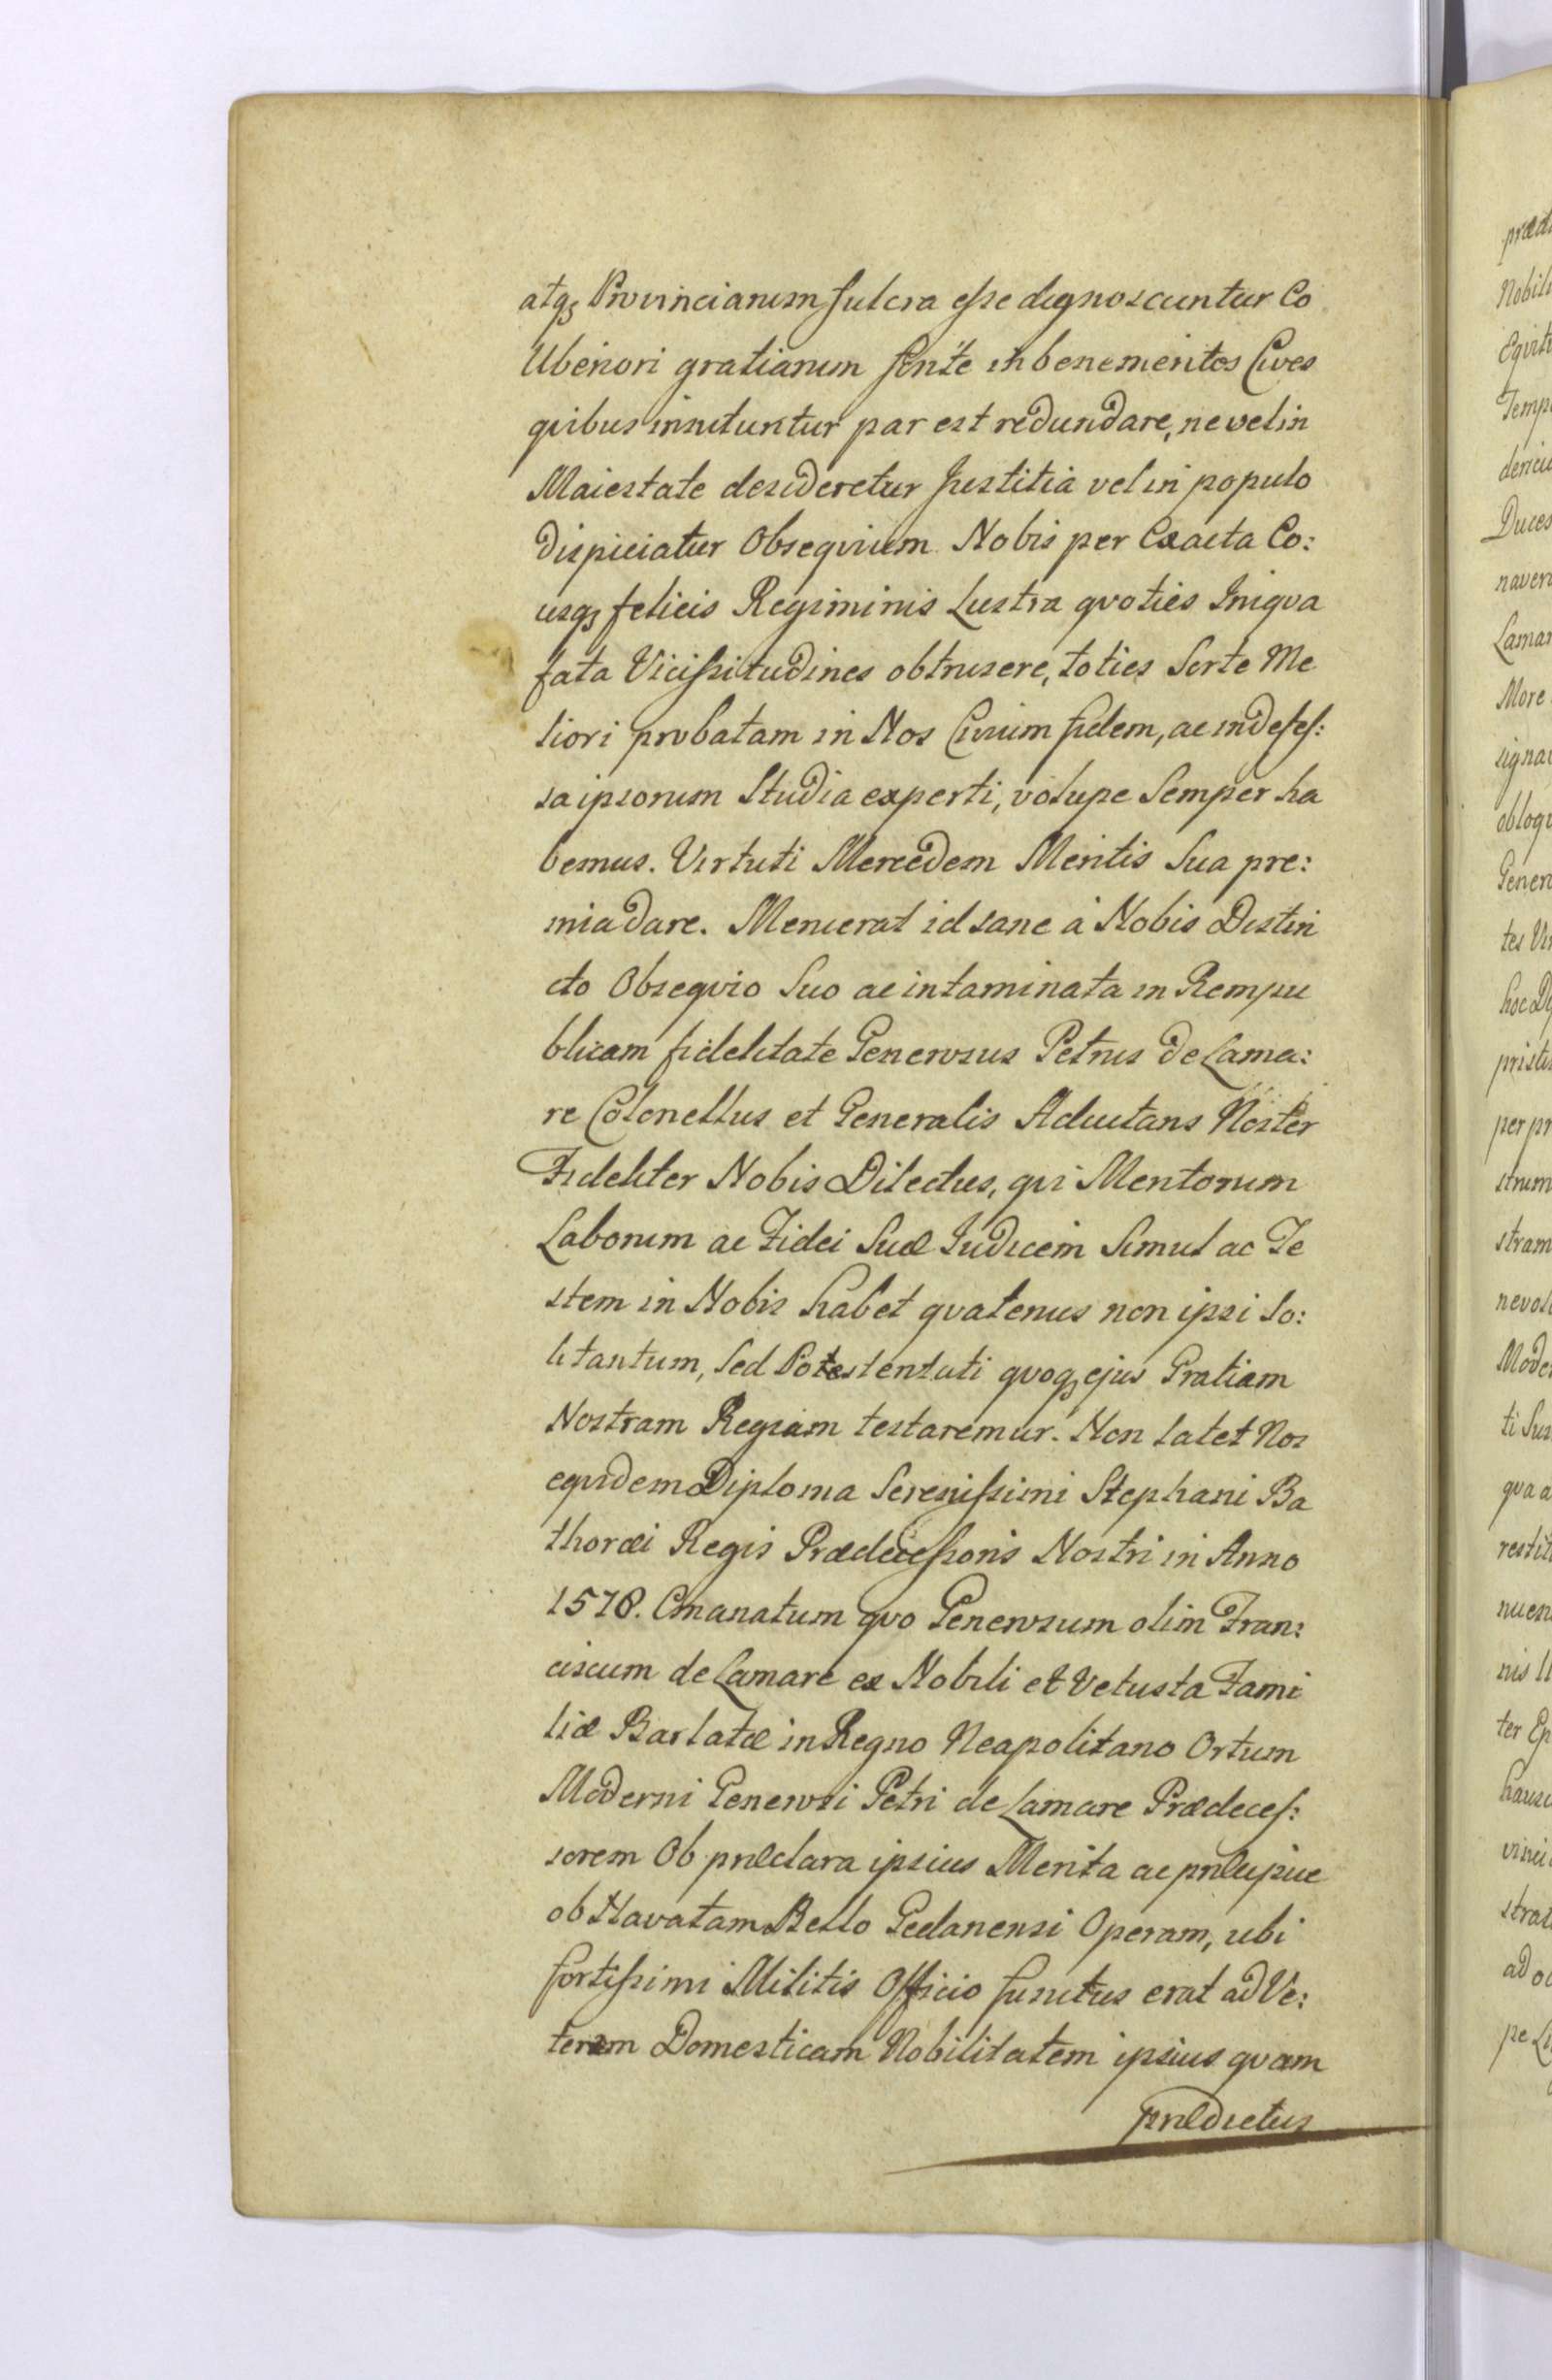 atqȝ Provinciarum fulcra eſse dignoscuntur Co
Uberiori gratiarum fonte in benemeritos Cives
quibus innituntur par est redundare, ne vel in
Maiestate desideretur Justitia vel in populo
dispiciatur Obsequium. Nobis per Exacta Co:
usqȝ felicis Regiminis Lustra quoties Iniqua
fata Viciſsitudines obtrusere, toties Sorte Me
liori probatam in Nos Civium fidem, ac indefeſ:
sa ipsorum Studia experti, volupe Semper ha
bemus. Virtuti Mercedem Meritis Sua pre:
mia dare. Meruerat id sane á Nobis Distin
cto Obsequio Suo ac intaminata in Rempu
blicam fidelitate Generosus Petrus de Lama:
re Colonellus et Generalis Adiutans Noster
Fideliter Nobis Dilectus, qui Meritorum
Laborum ac Fidei Suæ Iudicem Simul ac Te
stem in Nobis habet quatenus non ipsi So:
li tantum, Sed Potestentati quoqȝ ejus Gratiam
Nostram Regiam testaremur. Non latet Nos
equidem Diploma Sereniſsimi Stephani Ba
thoræi Regis Prædeceſsoris Nostri in Anno
1578. Emanatum quo Generosum olim Fran:
ciscum de Lamare ex Nobili et Vetusta Fami
liæ Barlatæ in Regno Neapolitano Ortum
Moderni Generosi Petri de Lamare Prædeceſ:
sorem Ob præclara ipsius Merita ac præcipue
ob Navatam Bello Gedanensi Operam, ubi
fortiſsimi Militis Officio functus erat ad Ve:
terem Domesticam Nobilitatem ipsius quam
prædictus